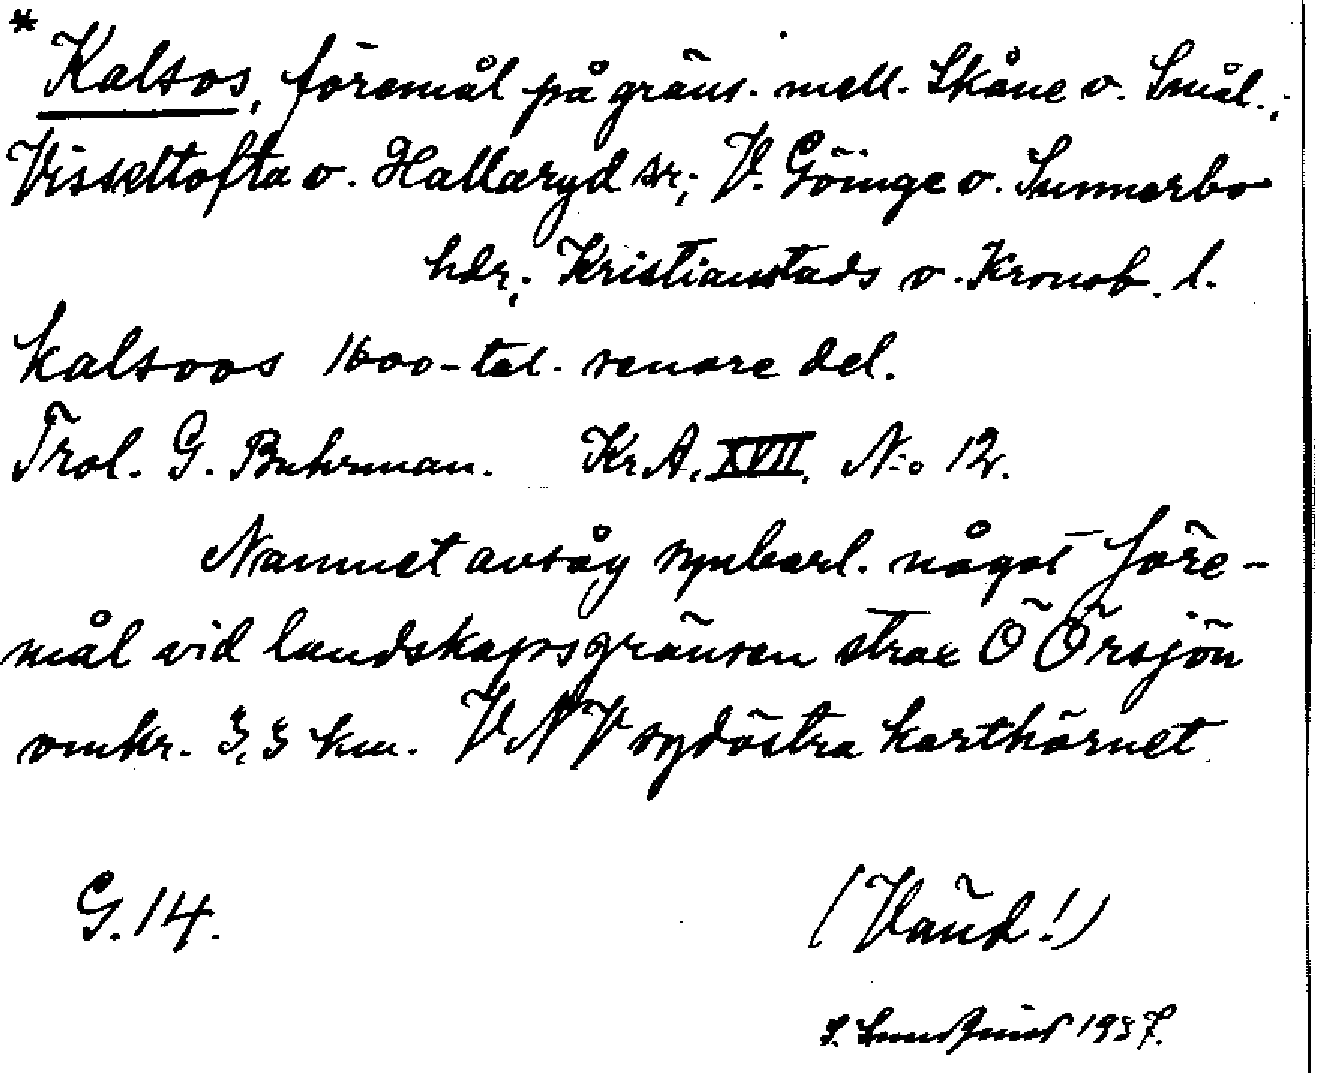 * Kalsos, föremål på gräns. mell. Skåne o. Smål.;
Visseltofta o. Hallaryd sr; V. Göinge o. Sunnerbo
hdr; Kristianstads o. Kronob. l.
kalsoos 1600-tal. senare del.
Trol. G. Buhrman. Kr.A. XVII, N:o 12.
Namnet avsåg synbarl. något före-
mål vid landskapsgränsen strax Ö Örsjön
omkr. 3,3 km. VNV sydöstra karthörnet
G. 14. (Vänd!)
1937.